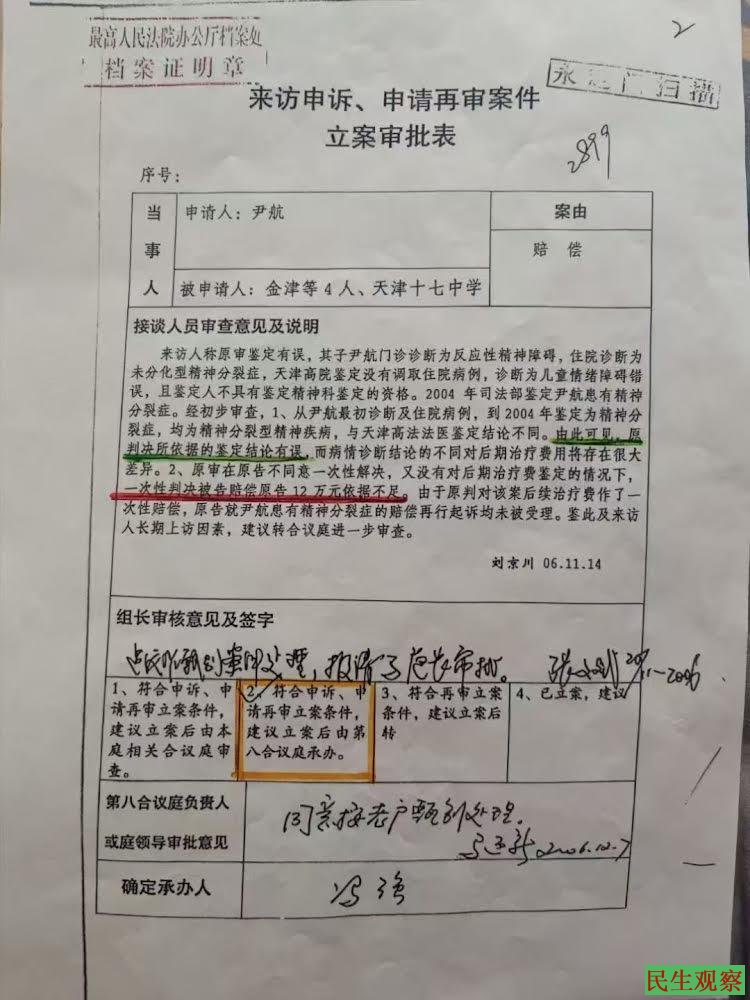 2
最高人民法院办公厅档案处
档案证明章
来访申诉、申请再审案件
立案审批表
2899
序号：
当事人
申请人：尹航
案由
赔 偿
被申请人：金津等4人、天津十七中学
接谈人员审查意见及说明
来访人称原审鉴定有误，其子尹航门诊诊断为反应性精神障碍，住院诊断为
未分化型精神分裂症，天津高院鉴定没有调取住院病例，诊断为儿童情绪障碍错
误，且鉴定人不具有鉴定精神科鉴定的资格。2004 年司法部鉴定尹航患有精神
分裂症。经初步审查，1、从尹航最初诊断及住院病例，到2004年鉴定为精神分
裂症，均为精神分裂型精神疾病，与天津高法法医鉴定结论不同。由此可见，原
判决所依据的鉴定结论有误，而病情诊断结论的不同对后期治疗费用将存在很大
差异。2、原审在原告不同意一次性解决，又没有对后期治疗费鉴定的情况下，
一次性判决被告赔偿原告12万元依据不足。由于原判对该案后续治疗费作了一
次性赔偿，原告就尹航患有精神分裂症的赔偿再行起诉均未被受理。鉴此及来访
人长期上访因素，建议转合议庭进一步审查。
刘京川 06.11.14
组长审核意见及签字
1、符合申诉、申
请再审立案条件，
建议立案后由本
庭相关合议庭审
查。
2、符合申诉、申
请再审立案条件，
建议立案后由第
八合议庭承办。
3、符合再审立案
条件，建议立案后
转
4、已立案，建议
第八合议庭负责人
或庭领导审批意见
同意按老户甄别处理。
2006.12.7
确定承办人
冯强
民生观察